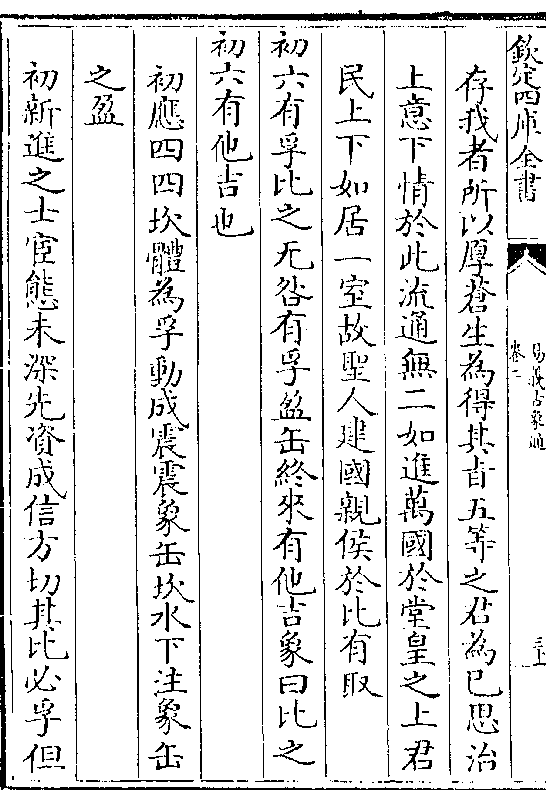 欽定四庫全書
易義古象通
卷二
存我者所以厚蒼生為得其旨五等之君為已思治
上意下情於此流通無二如進萬國於堂皇之上君
民上下如居一室故聖人建國親侯於比有取
初六有孚比之无咎有孚盈缶終來有他吉象曰比之
初六有他吉也
初應四四坎體為孚動成震震象缶坎水下注象缶
之盈
初新進之士宦態未深先資成信方切其比必孚但